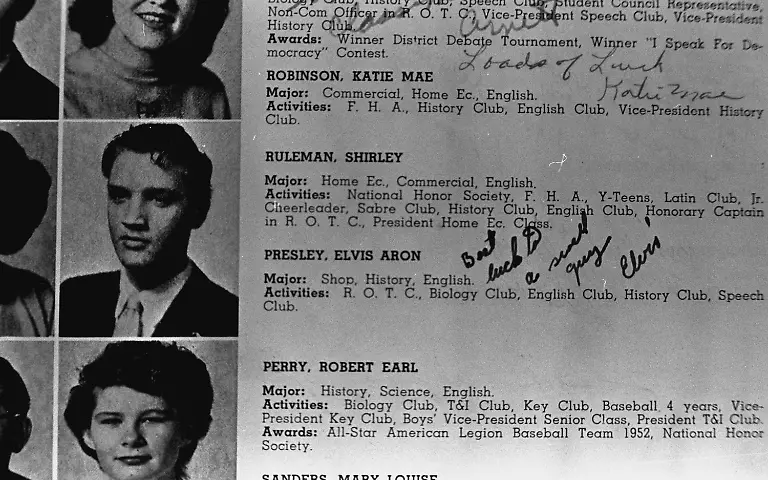 Biology Club, History Club, Speech Club, Student Council Representative,
Non-Com Officer in R. O. T. C., Vice-President Speech Club, Vice-President
History Club.
Awards: Winner District Debate Tournament, Winner "I Speak For De-
mocracy" Contest.
Loads of Luck
Katie Mae
ROBINSON, KATIE MAE
Major: Commercial, Home Ec., English.
Activities: F. H. A., History Club, English Club, Vice-President History
Club.
RULEMAN, SHIRLEY
Major: Home Ec., Commercial, English.
Activities: National Honor Society, F. H. A., Y-Teens, Latin Club, Jr.
Cheerleader, Sabre Club, History Club, English Club, Honorary Captain
in R. O. T. C., President Home Ec. Class.
PRESLEY, ELVIS ARON
Best
luck to
a swell
guy
Elvis
Major: Shop, History, English.
Activities: R. O. T. C., Biology Club, English Club, History Club, Speech
Club.
PERRY, ROBERT EARL
Major: History, Science, English.
Activities: Biology Club, T&I Club, Key Club, Baseball 4 years, Vice-
President Key Club, Boys' Vice-President Senior Class, President T&I Club.
Awards: All-Star American Legion Baseball Team 1952, National Honor
Society.
SANDERS, MARY LOUISE